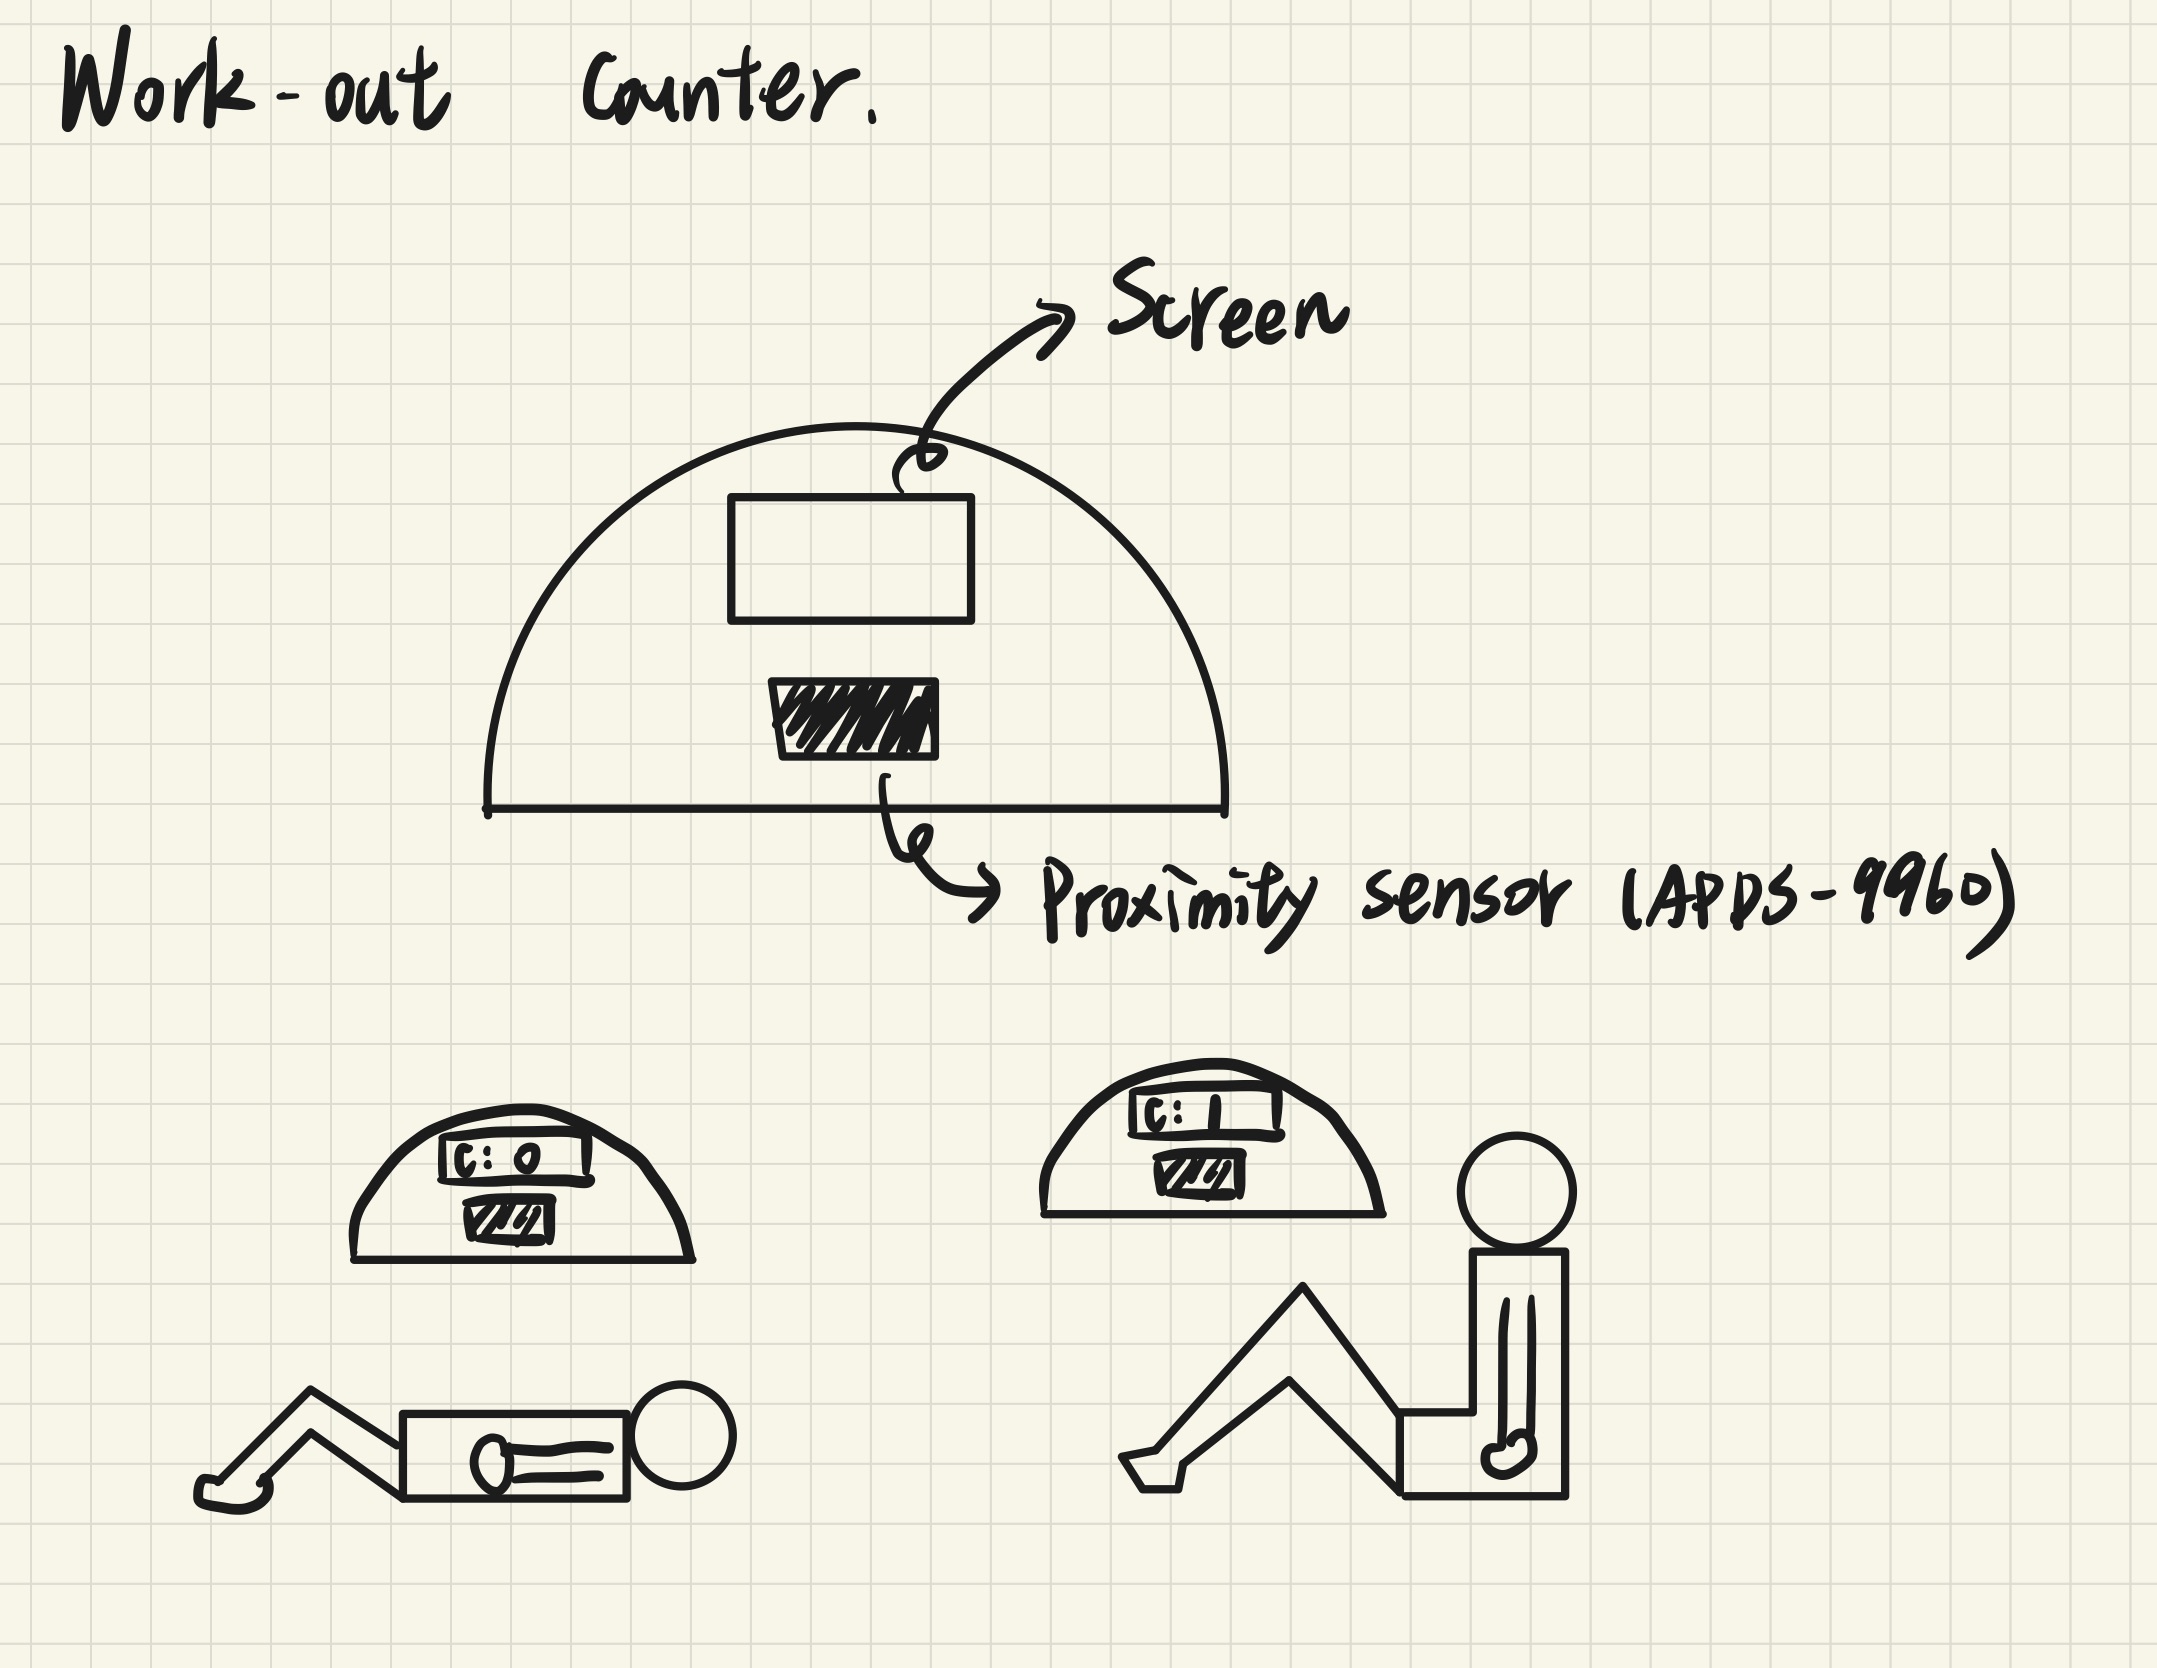 Work-out Counter.
Screen
Proximity sensor (APDS-9960)
C: 0
C: 1